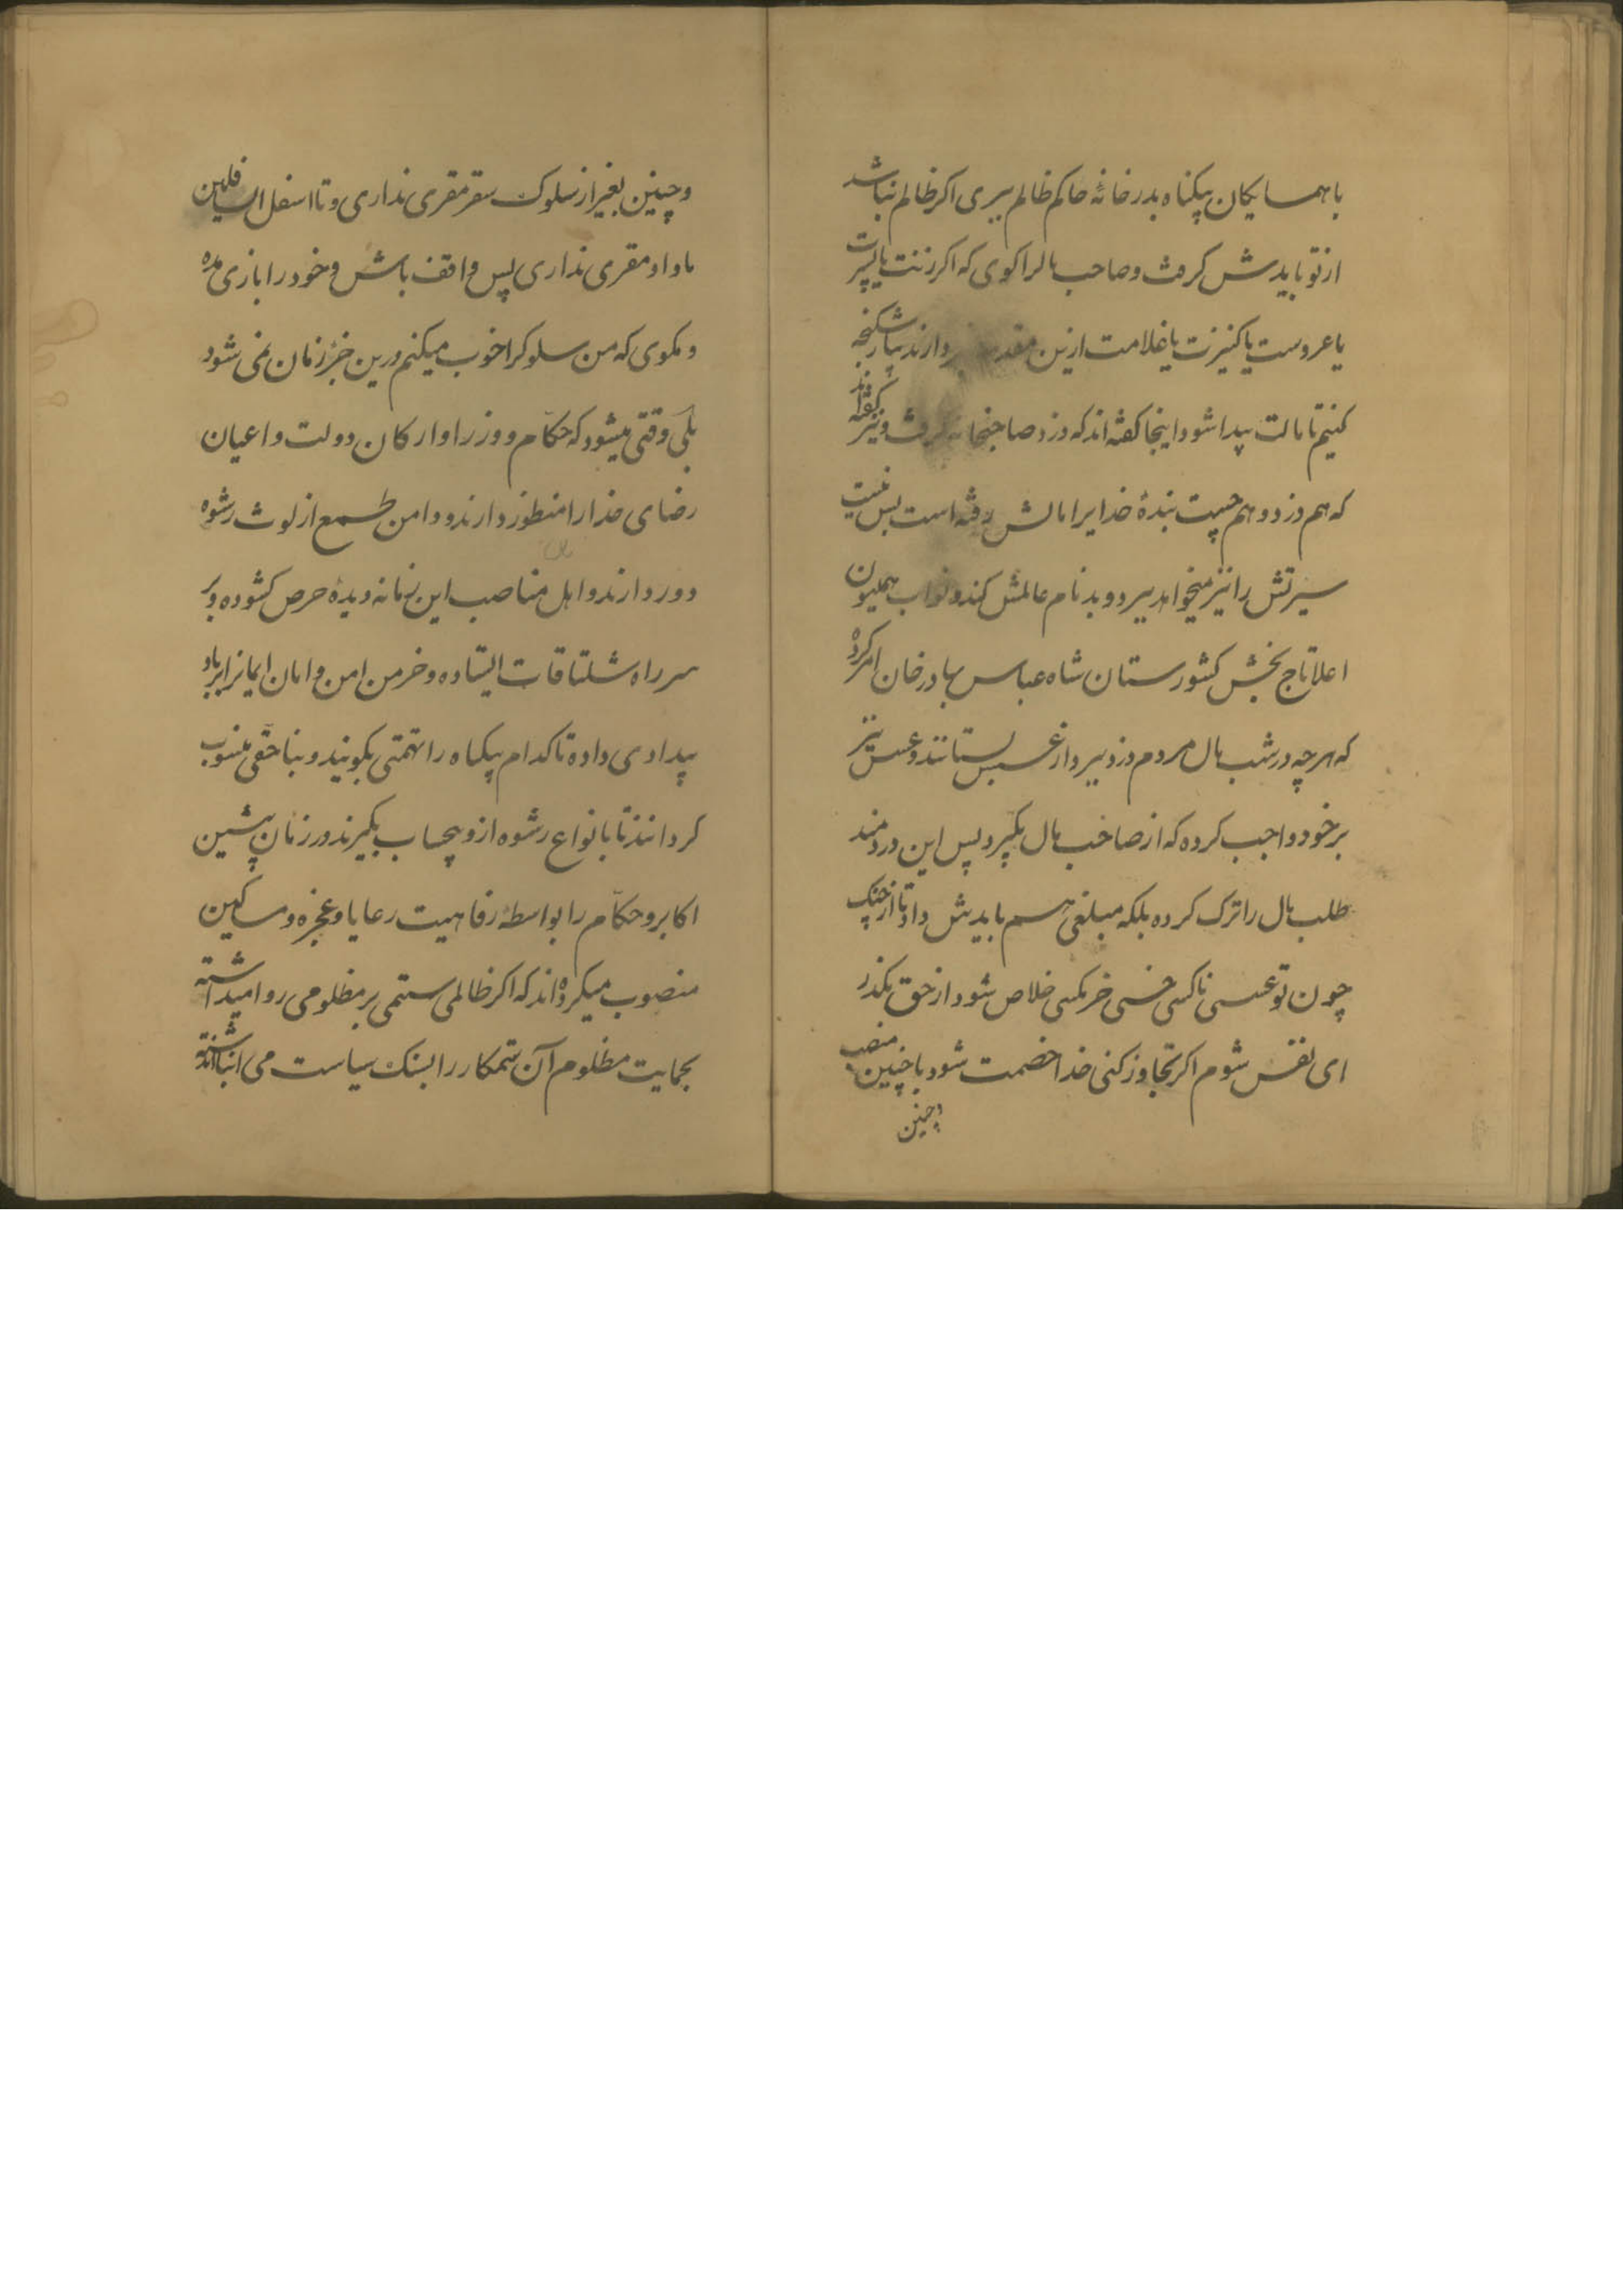 با همسایکان بیکناه بدر خانهٔ حاکم ظالم ببری اکر ظالم نباشد
از تو بایدش کرفت و صاحب مالرا کوی که اکر زنت یا پسرت
یا عروست یا کنیزت یا غلامت ازین مقدمه خبر دارند بیار شکنجه
کنیم تا مالت پیدا شود اینجا کفته‌اند که دزد صاحبخانه کرفت و نیز کفته‌اند
که هم دزد و هم چپت بندهٔ خدایرا مالش رفته است بس نیست
سیرتش را نیز میخواهد ببرد و بدنام عالمش کند و نواب همایون
اعلا تاج بخش کشورستان شاه عباس بهادر خان امر کرده
که هر چه در شب مال مردم دزد ببرد از عسس بستانند و عسس نیز
بر خود واجب کرده که از صاحب مال بگیرد پس این دردمند
طلب مال را ترک کرده بلکه مبلغی هم بایدش داد تا از چنک
چون تو عسسی ناکسی خسی خرمکسی خلاص شود از حق بگذر
ای نفس شوم اکر تجاوز کنی خدا خصمت شود با چنین منصب
و چنین
و چنین بغیر از سلوک سقر مقری نداری و تا اسفل السافلین
ماوا و مقری نداری پس واقف باش و خود را بازی مده
و مکوی که من سلوکرا خوب میکنم درین جزء زمان نمی شود
بلی وقتی میشود که حکام و وزرا و ارکان دولت و اعیان
رضای خدا را منظور دارند و دامن طمع از لوث رشوه
دور دارند و اهل مناصب این زمانه دیدهٔ حرص کشوده و بر
سر راه شلتاقات ایستاده و خرمن امن و امان ایمانرا بر باد
بیدادی داده تا کدام بیکناه را تهمتی بکویند و بناحقی منسوب
کردانند تا بانواع رشوه ازو بیحساب بکیرند در زمان پیشین
اکابر و حکام را بواسطهٔ رفاهیت رعایا و عجزه و مساکین
منصوب میکرده‌اند که اکر ظالمی ستمی بر مظلومی روا میداشته
بحمایت مظلوم آن ستمکار را بسنک سیاست می انباشته‌اند